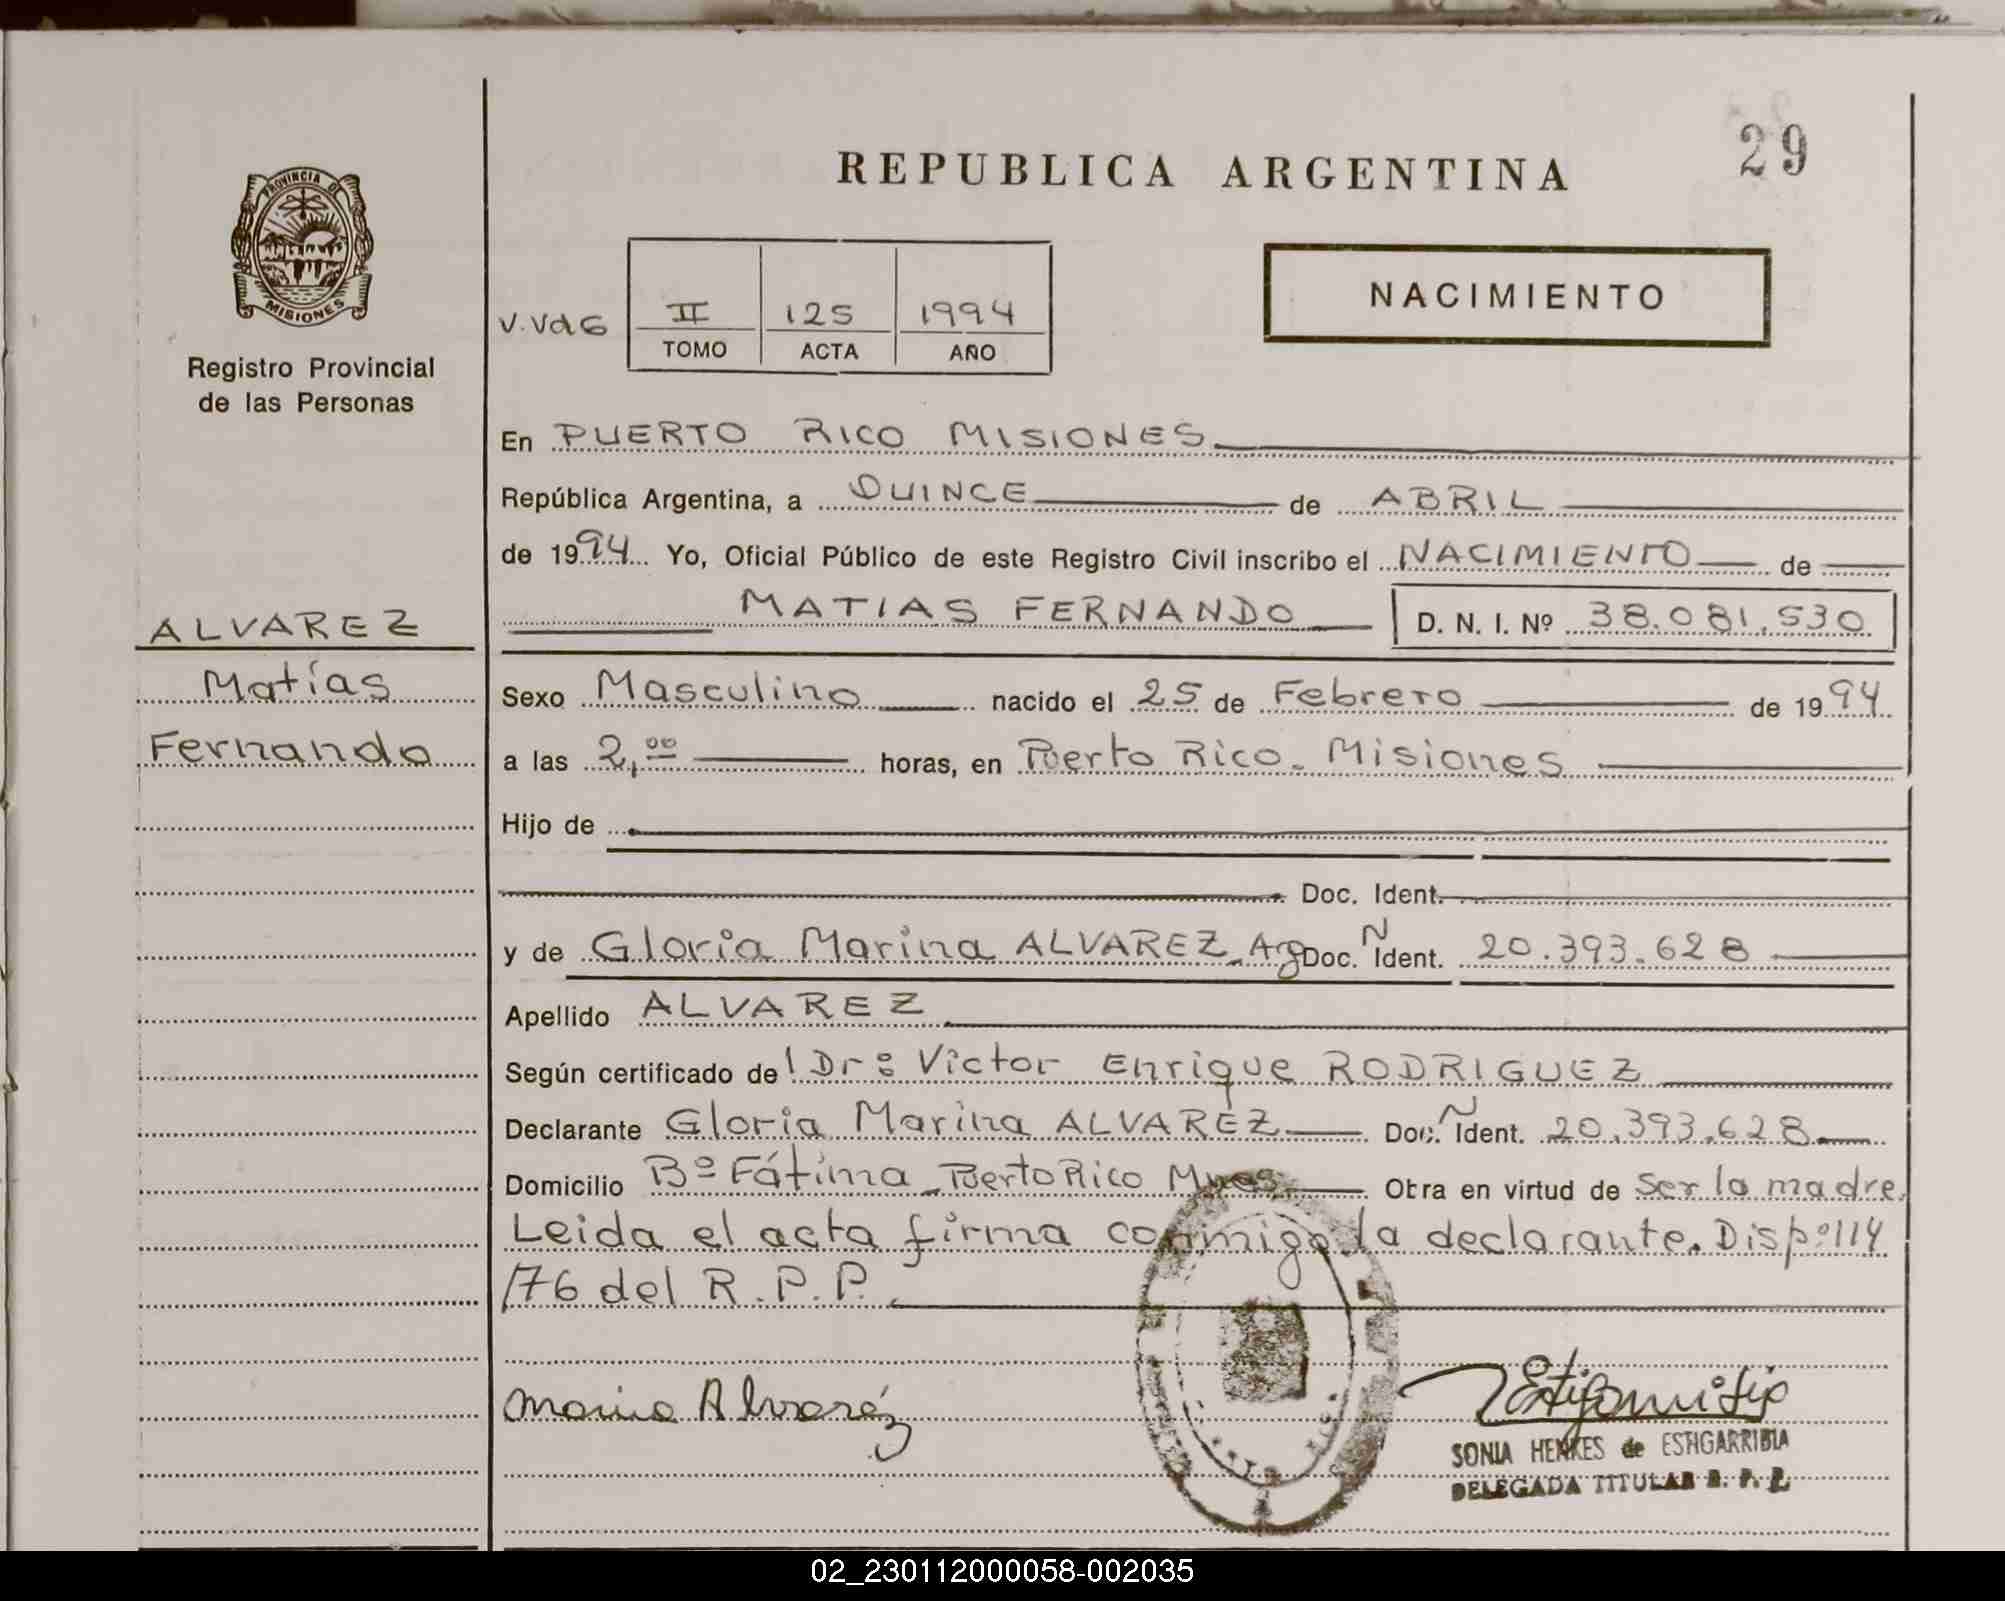 29
REPUBLICA ARGENTINA
PROVINCIA DE
MISIONES
Registro Provincial
de las Personas
V. Vd G
II 125 1994
TOMO ACTA AÑO
NACIMIENTO
En PUERTO RICO MISIONES
República Argentina, a QUINCE de ABRIL
de 1994 Yo, Oficial Público de este Registro Civil inscribo el NACIMIENTO de
MATIAS FERNANDO D. N. I. Nº 38.081.530
ALVAREZ
Matías
Fernando
Sexo Masculino nacido el 25 de Febrero de 1994
a las 2,00 horas, en Puerto Rico. Misiones
Hijo de
Doc. Ident.
y de Gloria Marina ALVAREZ. Arg Doc. N Ident. 20.393.628
Apellido ALVAREZ
Según certificado del Dr: Victor Enrique RODRIGUEZ
Declarante Gloria Marina ALVAREZ Doc. Ñ Ident. 20.393.628
Domicilio Bº Fátima Puerto Rico Mnes Obra en virtud de ser la madre.
Leida el acta firma conmigo la declarante. Disp:114
/76 del R.P.P.
Marina Alvaréz
SONIA HENKES de ESTIGARRIBIA
DELEGADA TITULAR R. P. P.
02_230112000058-002035